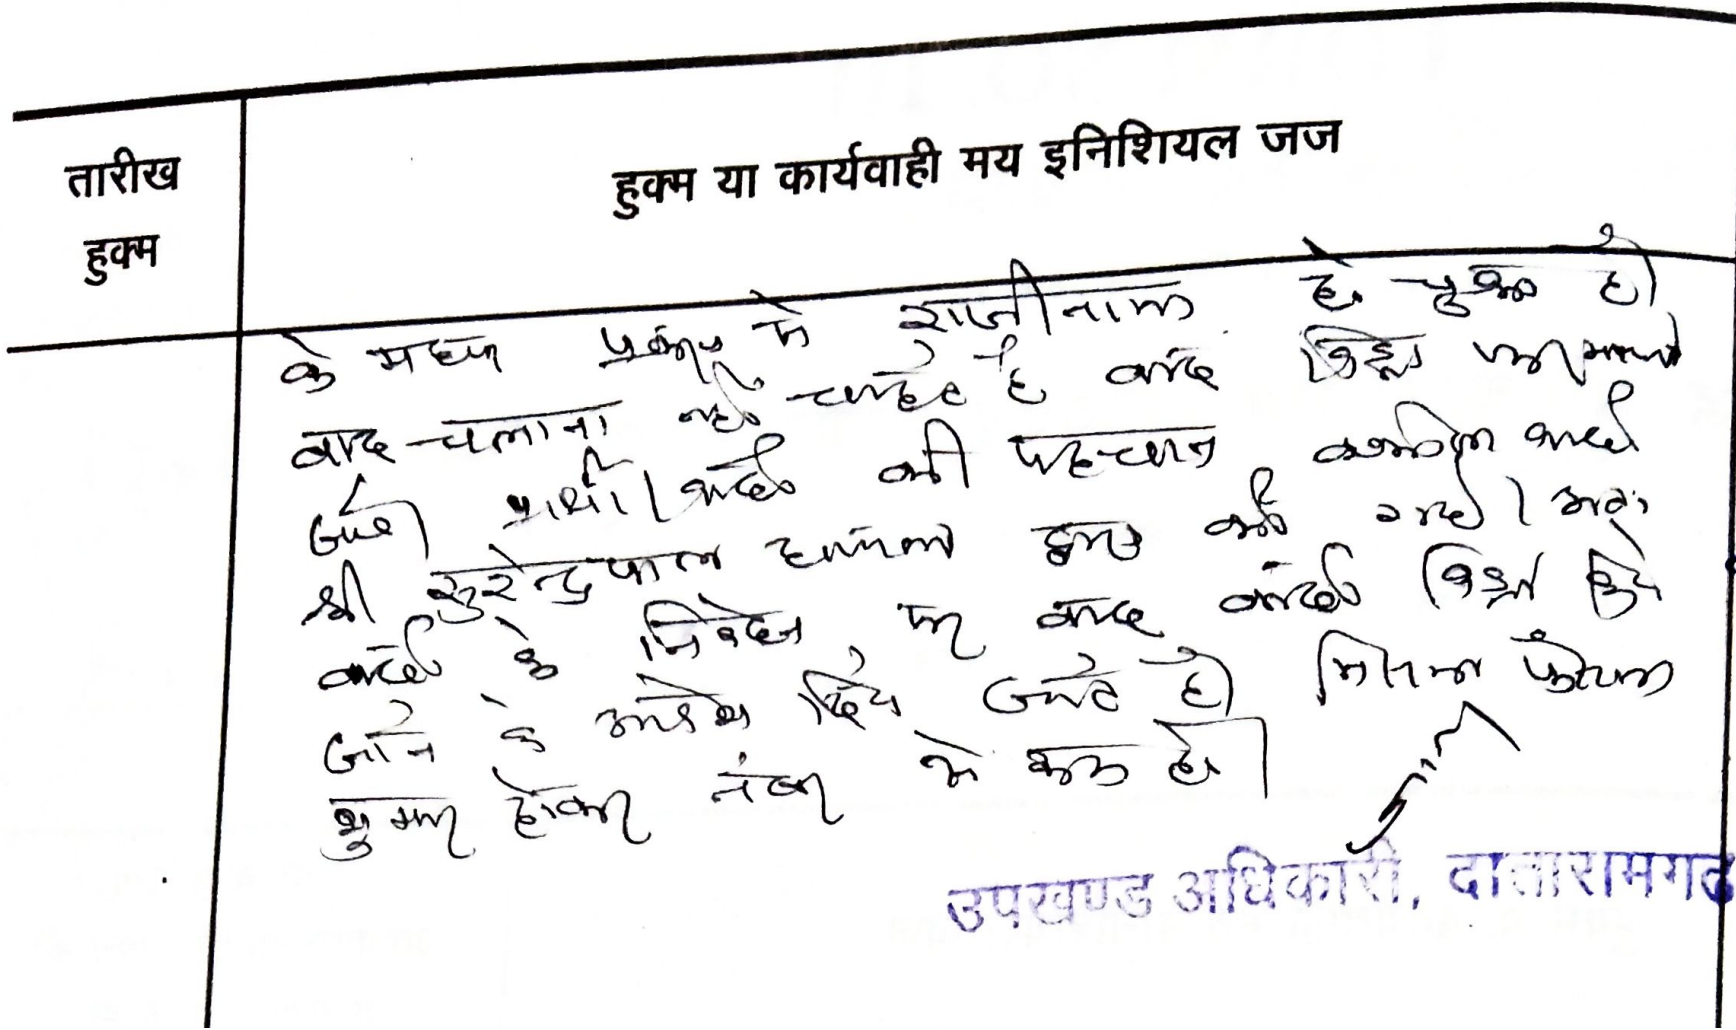 तारीख
हुक्म
हुक्म या कार्यवाही मय इनिशियल जज
के मध्य प्रकरण मे राजीनामा हो चुका है।
वाद चलाना नही चाहते है वाद विड्रा फरमाया
जावे। प्रार्थी/वादी की पहचान वकील वादी
श्री सुरेन्द्रपाल द्वारा की गई। अतः
वादी के निवेदन पर वाद वादी विड्रा किये
जाने के आदेश दिये जाते है। मिसल फैसल
शुमार होकर नंबर से कम हो।
उपखण्ड अधिकारी, दातारामगढ